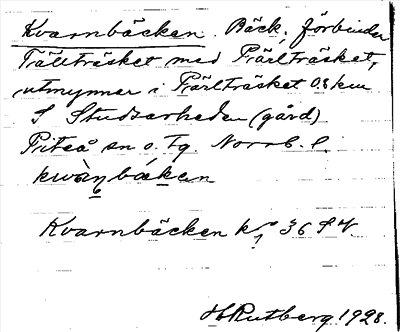 Kvarnbäcken. Bäck, förbinder
Tällträsket med Pjärlträsket,
utmynnar i Pjärlträsket 0.8 km
S Studsarheden (gård)
Piteå sn o. Tg. Norrb. l.
Kvarnbäcken k 36 SV.
H Rutberg 1928.